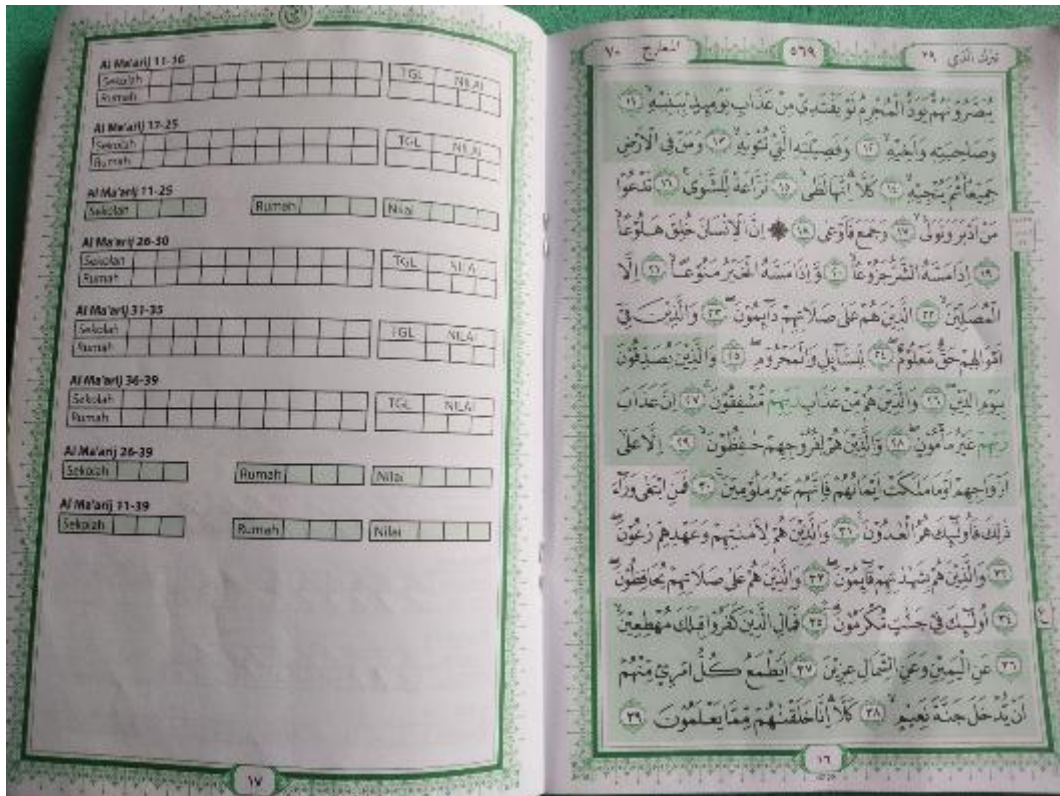 Al Ma'arij 11-16
Sekolah TGL NILAI
Rumah
Al Ma'arij 17-25
Sekolah TGL NILAI
Rumah
Al Ma'arij 11-25
Sekolah Rumah Nilai
Al Ma'arij 26-30
Sekolah TGL NILAI
Rumah
Al Ma'arij 31-35
Sekolah TGL NILAI
Rumah
Al Ma'arij 36-39
Sekolah TGL NILAI
Rumah
Al Ma'arij 26-39
Sekolah Rumah Nilai
Al Ma'arij 11-39
Sekolah Rumah Nilai
١٧
تبرك الذى ٢٩ ٥٦٩ المعارج ٧٠
يُبَصَّرُوْنَهُمْ يَوَدُّ الْمُجْرِمُ لَوْ يَفْتَدِيْ مِنْ عَذَابِ يَوْمِىِٕذٍۢ بِبَنِيْهِۙ ١١
وَصَاحِبَتِهٖ وَاَخِيْهِۙ ١٢ وَفَصِيْلَتِهِ الَّتِيْ تُـْٔوِيْهِۙ ١٣ وَمَنْ فِى الْاَرْضِ
جَمِيْعًاۙ ثُمَّ يُنْجِيْهِۙ ١٤ كَلَّاۗ اِنَّهَا لَظٰىۙ ١٥ نَزَّاعَةً لِّلشَّوٰىۚ ١٦ تَدْعُوْا
مَنْ اَدْبَرَ وَتَوَلّٰىۙ ١٧ وَجَمَعَ فَاَوْعٰى ١٨ ۞ اِنَّ الْاِنْسَانَ خُلِقَ هَلُوْعًاۙ
١٩ اِذَا مَسَّهُ الشَّرُّ جَزُوْعًاۙ ٢٠ وَّاِذَا مَسَّهُ الْخَيْرُ مَنُوْعًاۙ ٢١ اِلَّا
الْمُصَلِّيْنَۙ ٢٢ الَّذِيْنَ هُمْ عَلٰى صَلَاتِهِمْ دَاۤىِٕمُوْنَۖ ٢٣ وَالَّذِيْنَ فِيْٓ
اَمْوَالِهِمْ حَقٌّ مَّعْلُوْمٌۖ ٢٤ لِّلسَّاۤىِٕلِ وَالْمَحْرُوْمِۖ ٢٥ وَالَّذِيْنَ يُصَدِّقُوْنَ
بِيَوْمِ الدِّيْنِۖ ٢٦ وَالَّذِيْنَ هُمْ مِّنْ عَذَابِ رَبِّهِمْ مُّشْفِقُوْنَۚ ٢٧ اِنَّ عَذَابَ
رَبِّهِمْ غَيْرُ مَأْمُوْنٍۖ ٢٨ وَّالَّذِيْنَ هُمْ لِفُرُوْجِهِمْ حٰفِظُوْنَۙ ٢٩ اِلَّا عَلٰٓى
اَزْوَاجِهِمْ اَوْ مَا مَلَكَتْ اَيْمَانُهُمْ فَاِنَّهُمْ غَيْرُ مَلُوْمِيْنَۚ ٣٠ فَمَنِ ابْتَغٰى وَرَاۤءَ
ذٰلِكَ فَاُولٰۤىِٕكَ هُمُ الْعٰدُوْنَۚ ٣١ وَالَّذِيْنَ هُمْ لِاَمٰنٰتِهِمْ وَعَهْدِهِمْ رٰعُوْنَۖ
٣٢ وَالَّذِيْنَ هُمْ بِشَهٰدٰتِهِمْ قَاۤىِٕمُوْنَۖ ٣٣ وَالَّذِيْنَ هُمْ عَلٰى صَلَاتِهِمْ يُحَافِظُوْنَۖ
٣٤ اُولٰۤىِٕكَ فِيْ جَنّٰتٍ مُّكْرَمُوْنَۗ ٣٥ فَمَالِ الَّذِيْنَ كَفَرُوْا قِبَلَكَ مُهْطِعِيْنَۙ
٣٦ عَنِ الْيَمِيْنِ وَعَنِ الشِّمَالِ عِزِيْنَ ٣٧ اَيَطْمَعُ كُلُّ امْرِئٍ مِّنْهُمْ
اَنْ يُّدْخَلَ جَنَّةَ نَعِيْمٍۙ ٣٨ كَلَّاۗ اِنَّا خَلَقْنٰهُمْ مِّمَّا يَعْلَمُوْنَ ٣٩
ع
١٦